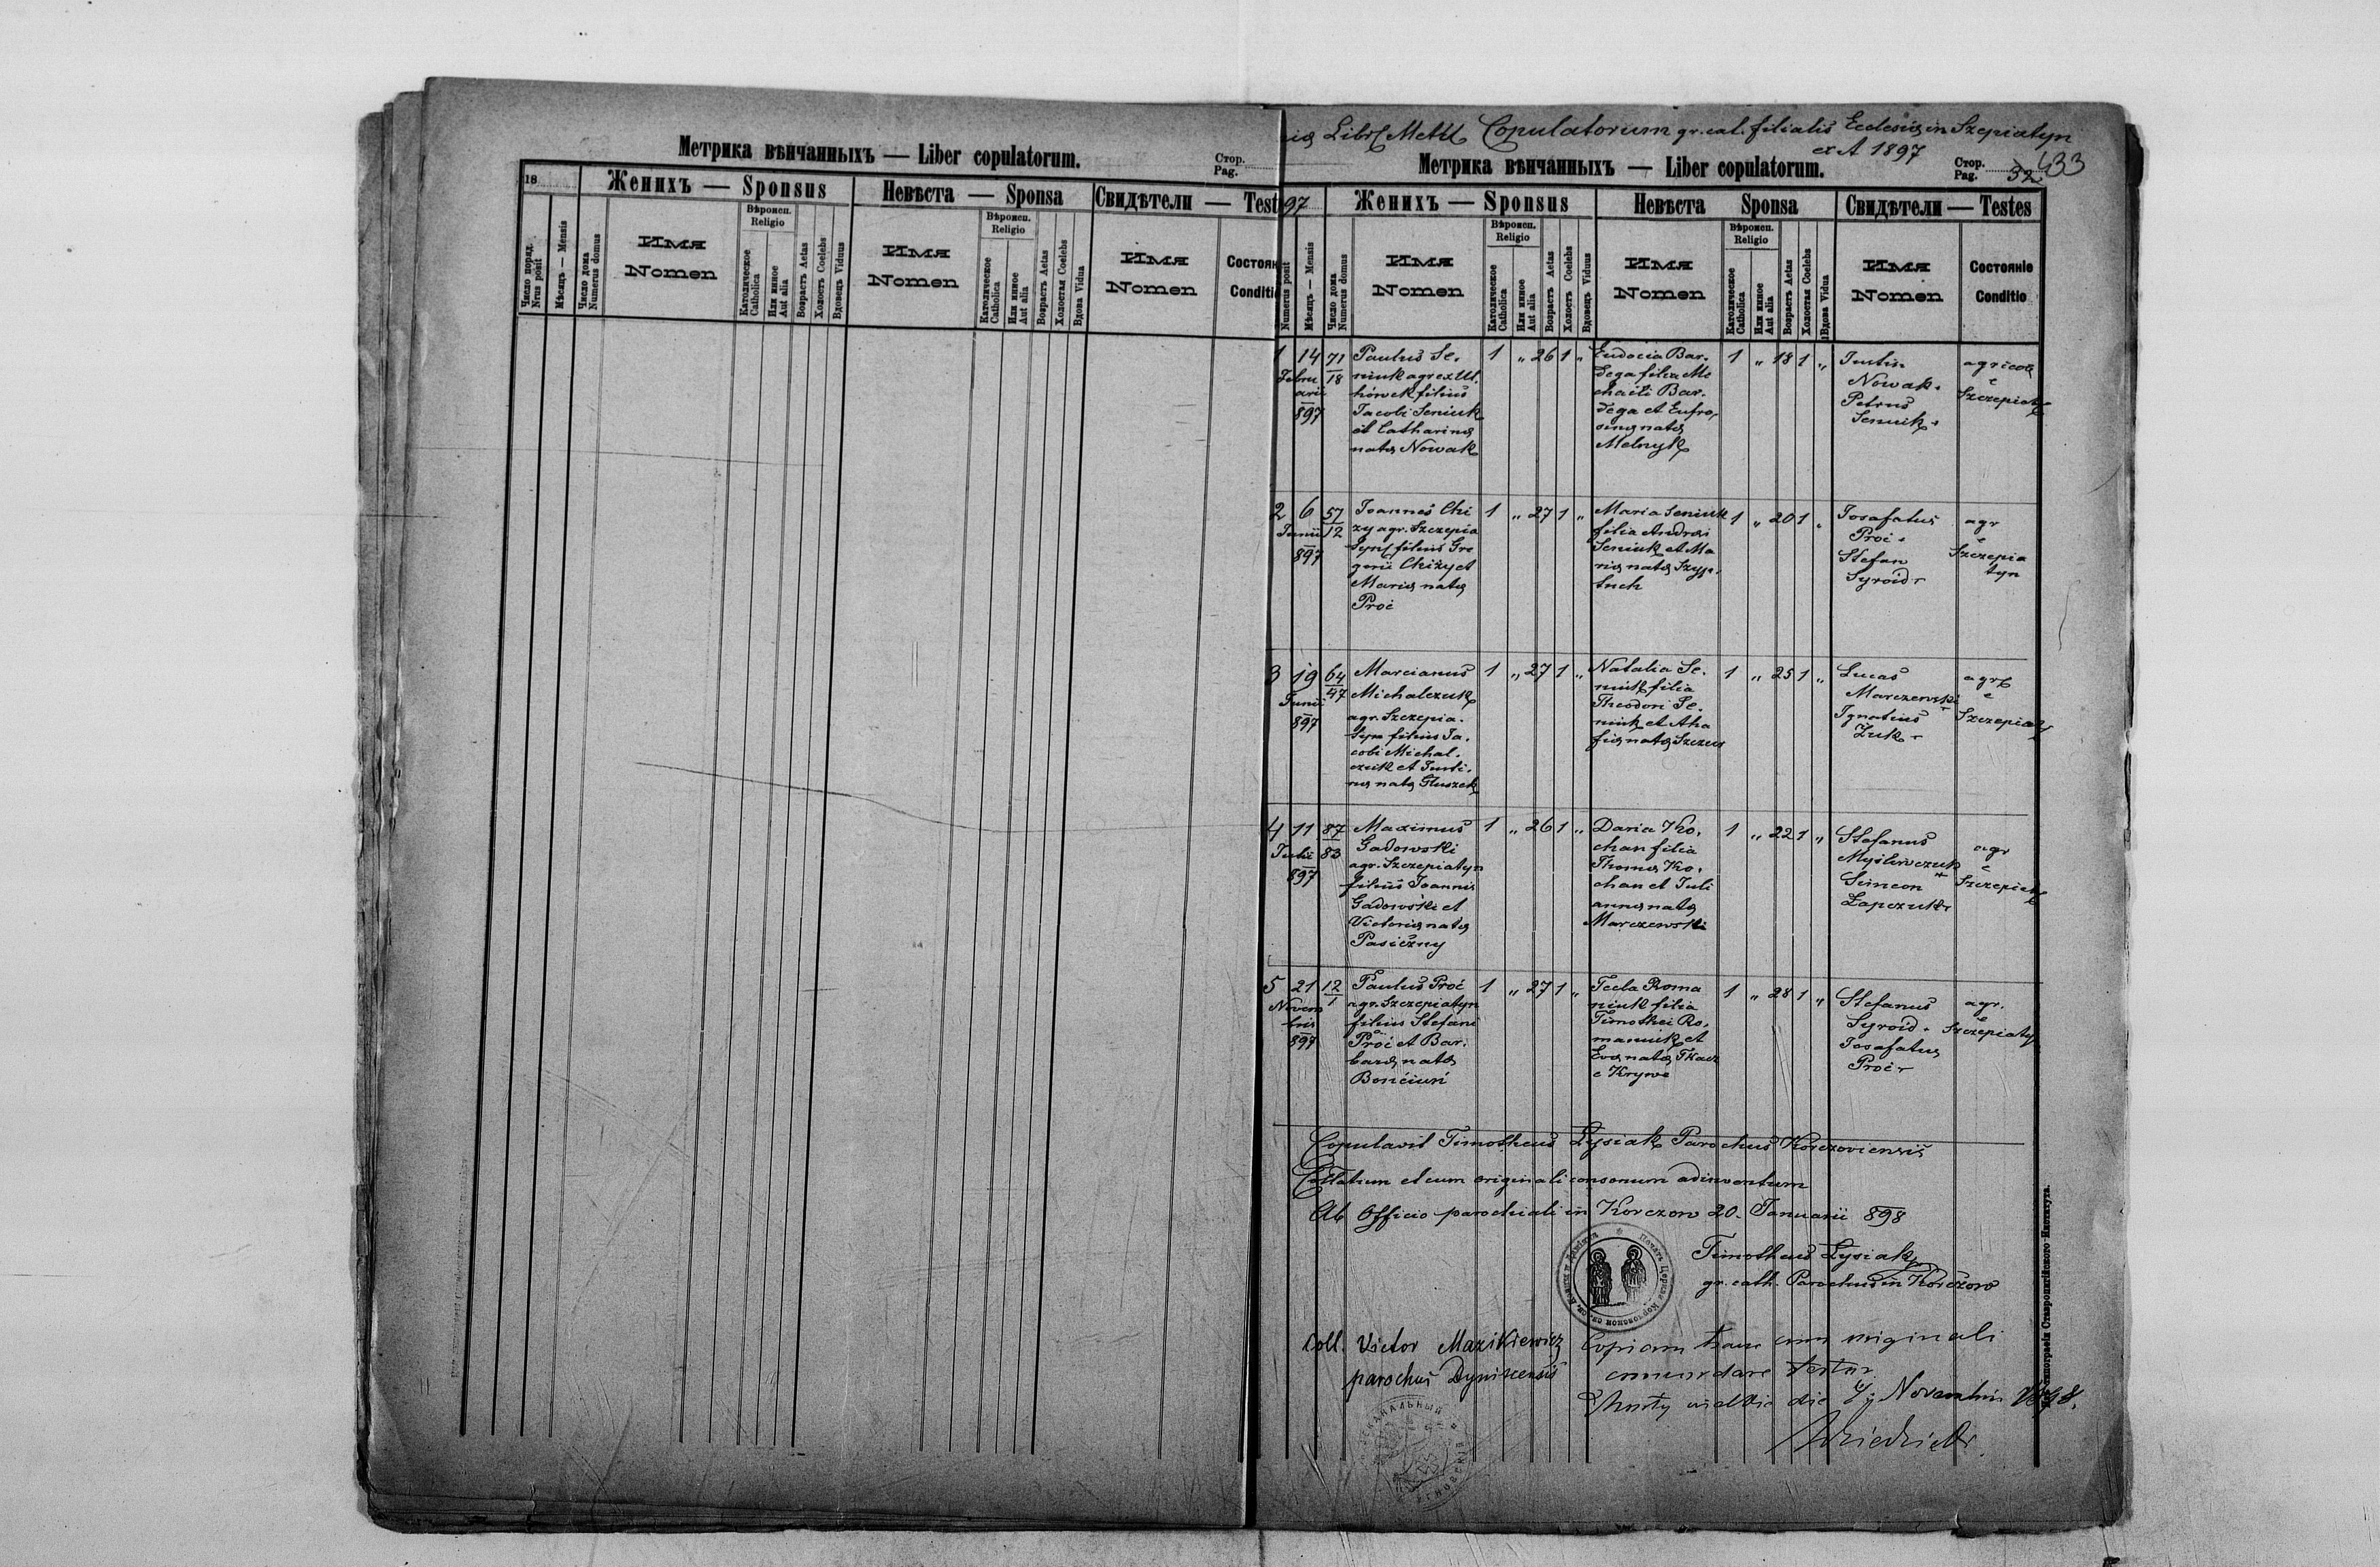 Метрика вѣнчанныхъ — Liber copulatorum.
Стор.
Pag.
18
Женихъ — Sponsus
Невѣста — Sponsa
Свидѣтели — Test
Число поряд.
Nrus posit
Мѣсяцъ — Mensis
Число дома
Numerus domus
Имя
Nomen
Вѣроисп.
Religio
Католическое
Catholica
Или иное
Aut alia
Возрастъ Aetas
Холостъ Coelebs
Вдовецъ Viduus
Имя
Nomen
Вѣроисп.
Religio
Католическое
Catholica
Или иное
Aut alia
Возрастъ Aetas
Холостая Coelebs
Вдова Vidua
Имя
Nomen
Состоян
Conditi
Libr Metr Copulatorum gr. cat. filialis Ecclesiæ in Szepiatyn
ex A 1897
Метрика вѣнчанныхъ — Liber copulatorum.
Стор.
Pag.
32
433
97
Женихъ — Sponsus
Невѣста Sponsa
Свидѣтели — Testes
Numerus posit
Мѣсяцъ — Mensis
Число дома
Numerus domus
Имя
Nomen
Вѣроисп.
Religio
Католическое
Catholica
Или иное
Aut alia
Возрастъ Aetas
Холостъ Coelebs
Вдовецъ Viduus
Имя
Nomen
Вѣроисп.
Religio
Католическое
Catholica
Или иное
Aut alia
Возрастъ Aetas
Холостая Coelebs
Вдова Vidua
Имя
Nomen
Состояніе
Conditio
1
14
Febru
arii
897
71
18
Paulus Se.
niuk agr ex Ul.
hówek filius
Jacobi Seniuk
et Catharinæ
natæ Nowak
1 „ 26 1 „
Eudocia Bar.
dega filia Mi
chaëli Bar.
dega et Eufro.
sinæ natæ
Melnyk
1 „ 18 1 „
Justin
Nowak.
Petrus
Seniuk.
agricolæ
e
Szczepiaty
2
6
Junii
897
57
12
Joannes Chi
zy agr. Szczepia
tyn filius Gre
gorii Chiży et
Mariæ natæ
Proć
1 „ 27 1 „
Maria Seniuk
filia Andrei
Seniuk et Ma
riæ natæ
1 „ 20 1 „
Josafatus
Proć.
Stefan
Syroid
agr
e
Szczepia
tyn
3
19
Junii
897
64
47
Marcianus
Michalczuk
agr. Szczepia.
tyn filius Ja.
cobi Michal.
czuk et Justi.
næ natæ Głuszek
1 „ 27 1 „
Natalia Se.
niuk filia
Theodori Se.
niuk et Aha
fiæ natæ
1 „ 25 1 „
Lucas
Marczewski
Ignatius
Żuk
agr
e
Szczepiaty
4
11
Julii
897
87
83
Maximus
Gadowski
agr. Szczepiatyn
filius Joannis
Gadowski et
Victoriæ natæ
Pasiczny
1 „ 26 1 „
Daria Ko.
chan filia
Thomæ Ko.
chan et Juli
annæ natæ
Marczewski
1 „ 22 1 „
Stefanus
Myśliwczuk
Simeon
Łapczuk
agr
e
Szczepiaty
5
21
Novem
bris
897
12
1
Paulus Proć
agr. Szczepiatyn
filius Stefani
Proć et Bar.
baræ natæ
Bonciuń
1 „ 27 1 „
Tecla Roma
niuk filia
Timothei Ro.
maniuk et
Evæ natæ Tkacz
e Krywe
1 „ 28 1 „
Stefanus
Syroid.
Josafatus
Proć
agr.
e
Szczepiaty
Copulavit Timotheus Łysiak Parochus Korczoviensis
Collatum et cum originali consonum adinventum
Ab Officio parochiali in Korczow 20. Januarii 898
Timotheus Łysiak
gr. cath. Parochus in Korczow
Coll. Victor Mazikiewicz
parochus Dyniscensis
Copiam hanc cum originali
concordare testor
die Novembris 1898.